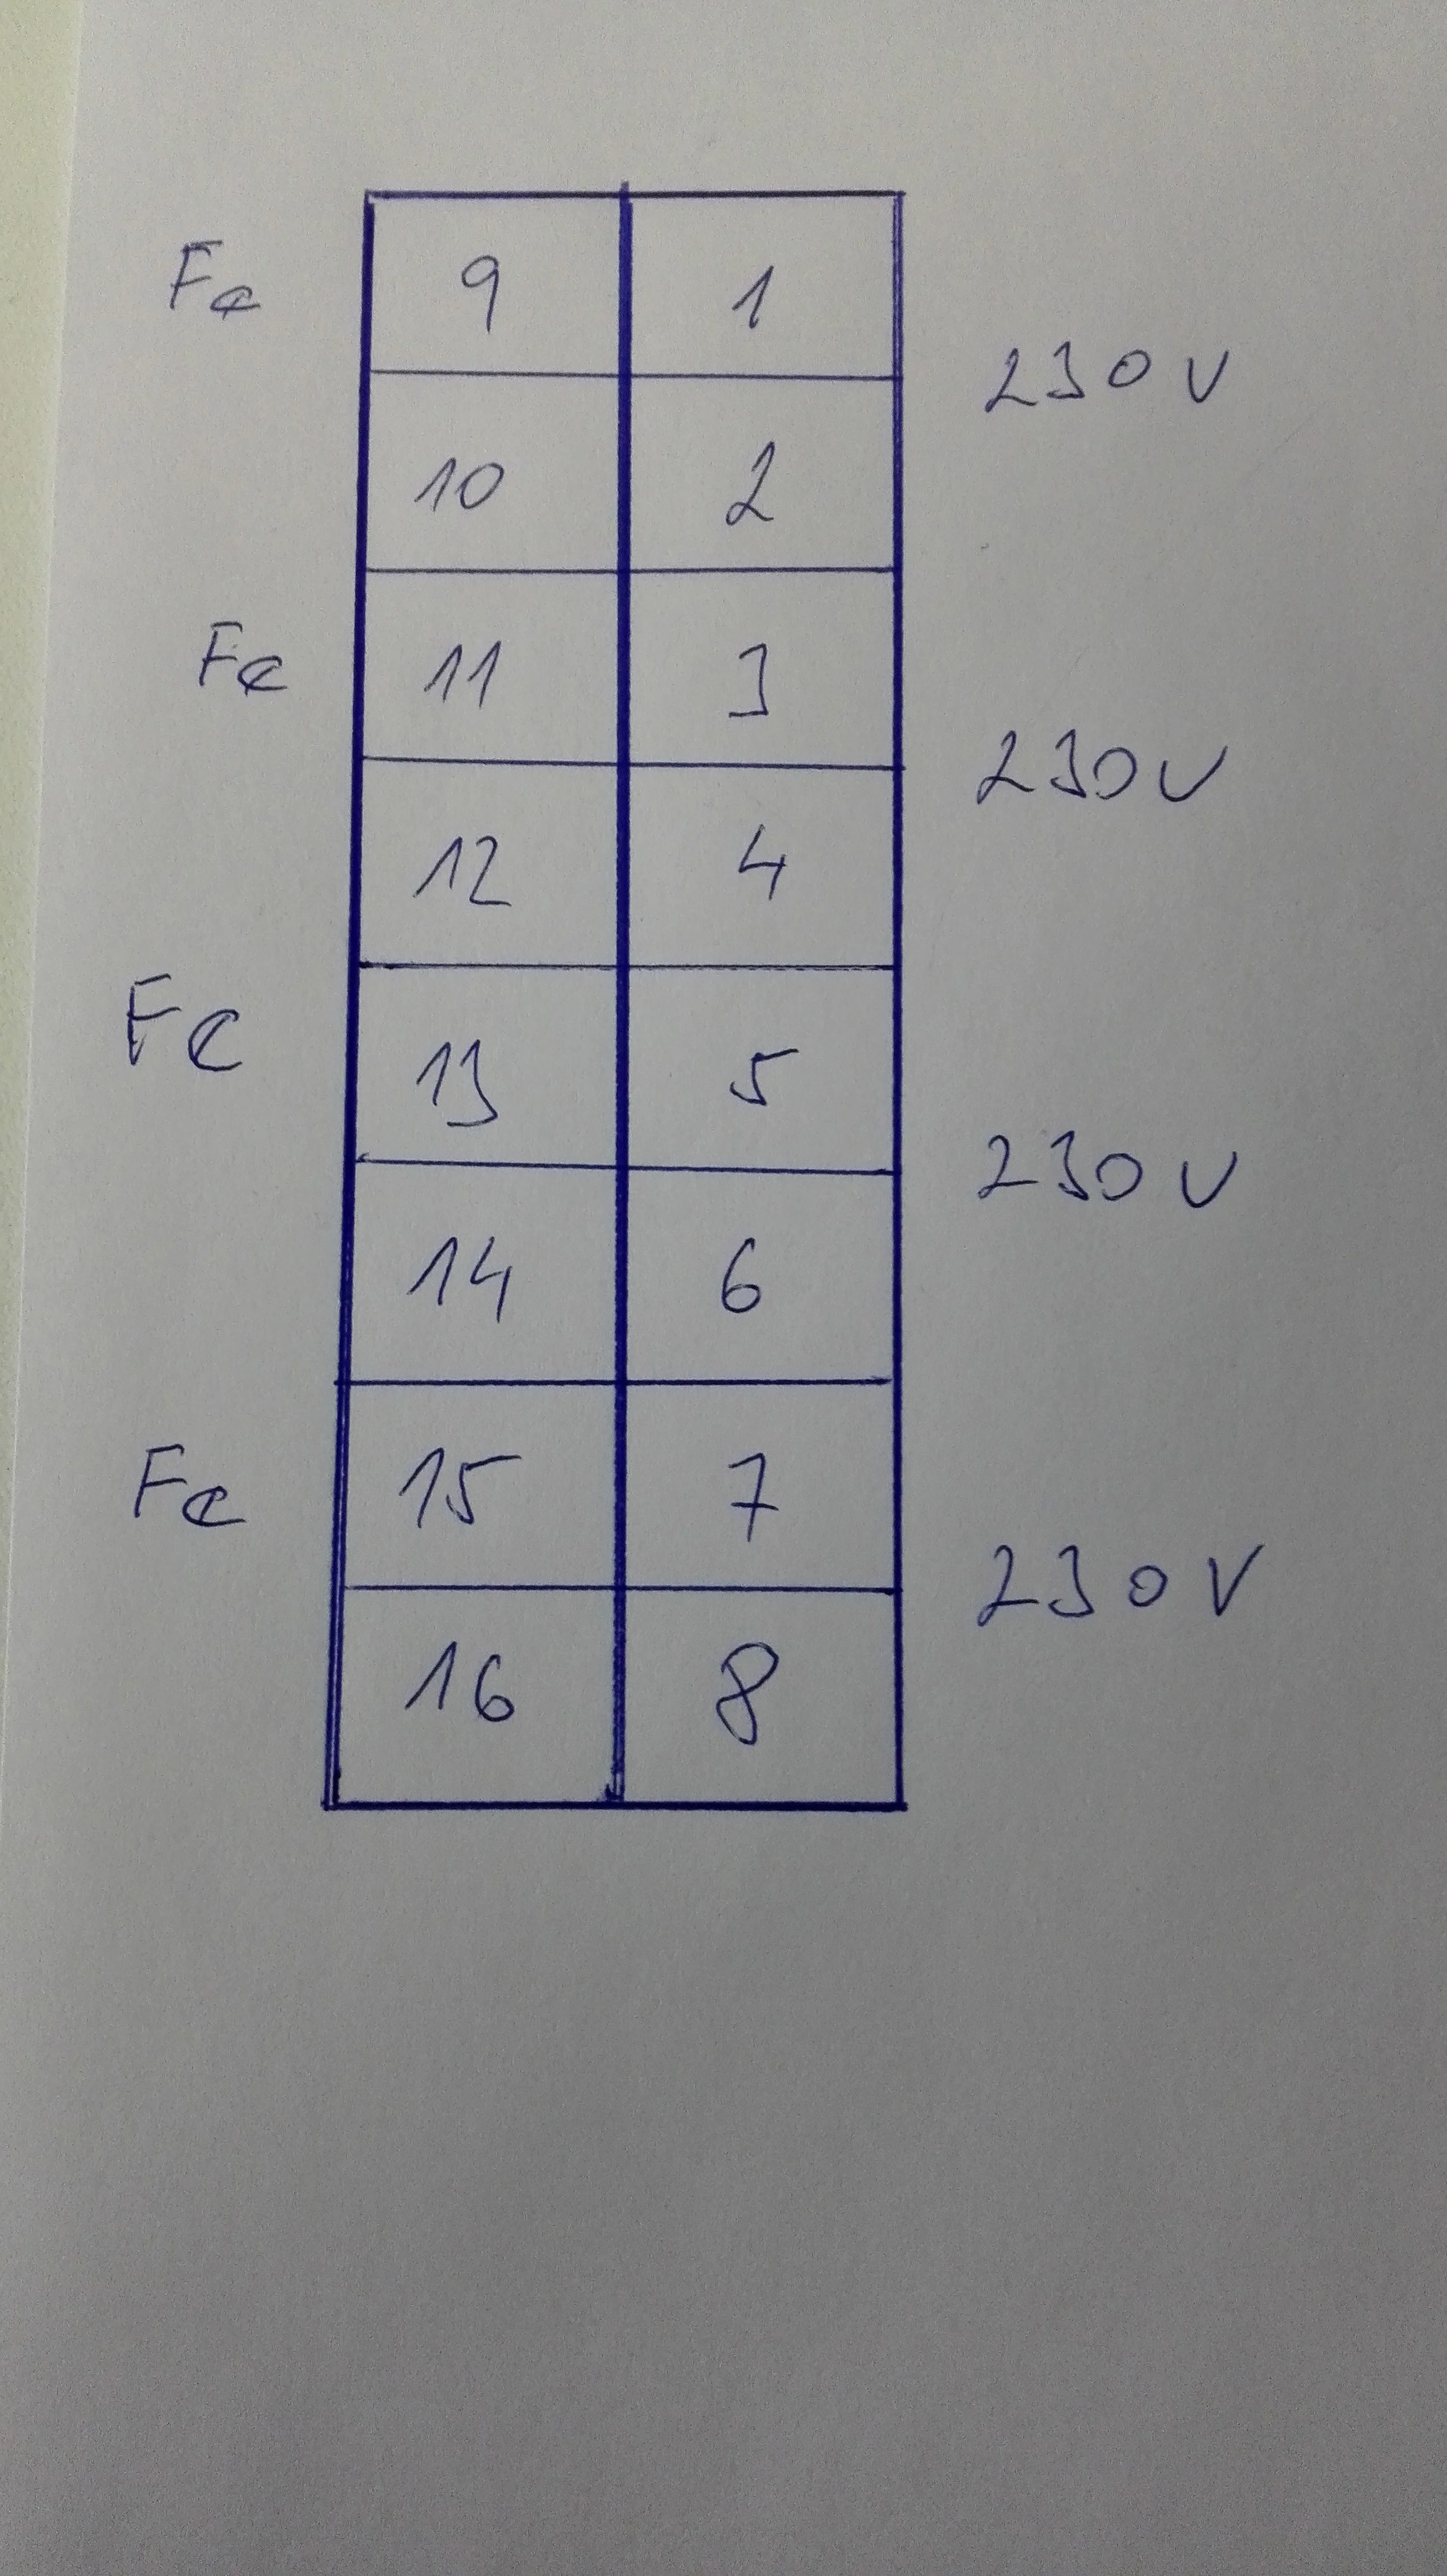 Fe 9 1
230V
10 2
Fe 11 3
230V
12 4
Fe 13 5
230V
14 6
Fe 15 7
230V
16 8